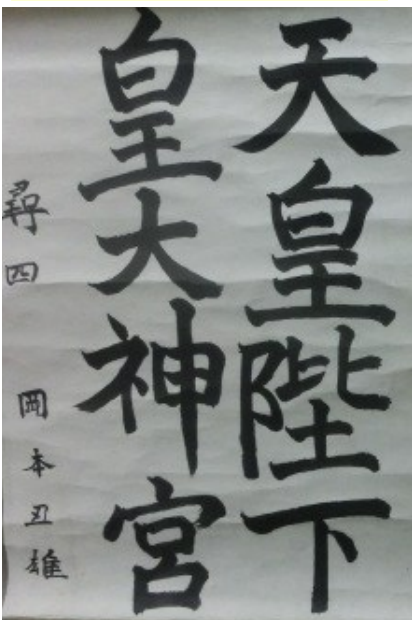 天皇陛下
皇大神宮
尋四 岡本丑雄